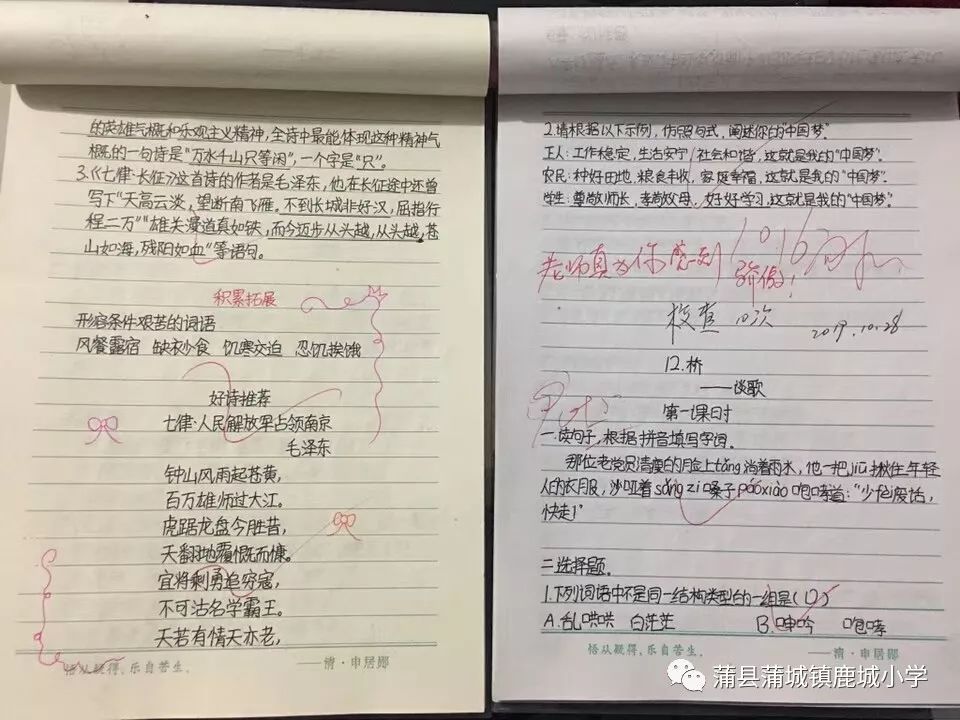 的英雄气概和乐观主义精神,全诗中最能体现这种精神气
概的一句诗是“万水千山只等闲”,一个字是“只”。
3.《七律·长征》这首诗的作者是毛泽东,他在长征途中还曾
写下“天高云淡,望断南飞雁。不到长城非好汉,屈指行
程二万”“雄关漫道真如铁,而今迈步从头越,从头越,苍
山如海,残阳如血”等语句。
积累拓展
形容条件艰苦的词语
风餐露宿 缺衣少食 饥寒交迫 忍饥挨饿
好诗推荐
七律·人民解放军占领南京
毛泽东
钟山风雨起苍黄,
百万雄师过大江。
虎踞龙盘今胜昔,
天翻地覆慨而慷。
宜将剩勇追穷寇,
不可沽名学霸王。
天若有情天亦老,
悟从疑得,乐自苦生。
——清·申居郧
2.请根据以下示例,仿照句式,阐述你的“中国梦”。
工人:工作稳定,生活安宁,社会和谐,这就是我的“中国梦”。
农民:种好田地,粮食丰收,家庭幸福,这就是我的“中国梦”。
学生:尊敬师长,孝敬父母,好好学习,这就是我的“中国梦”。
老师真为你感到
骄傲!
10.16
检查 10次
2019.10.28
12.桥
——谈歌
第一课时
一.读句子,根据拼音填写字词。
那位老党员清瘦的脸上tǎng淌着雨水,他一把jiū揪住年轻
人的衣服,沙哑着sǎng zi嗓子páoxiào咆哮道:“少说废话,
快走!”
二.选择题。
1.下列词语中不是同一结构类型的一组是(D)
A.乱哄哄 白茫茫 B.呻吟 咆哮
悟从疑得,乐自苦生。
——清·申居郧
蒲县蒲城镇鹿城小学